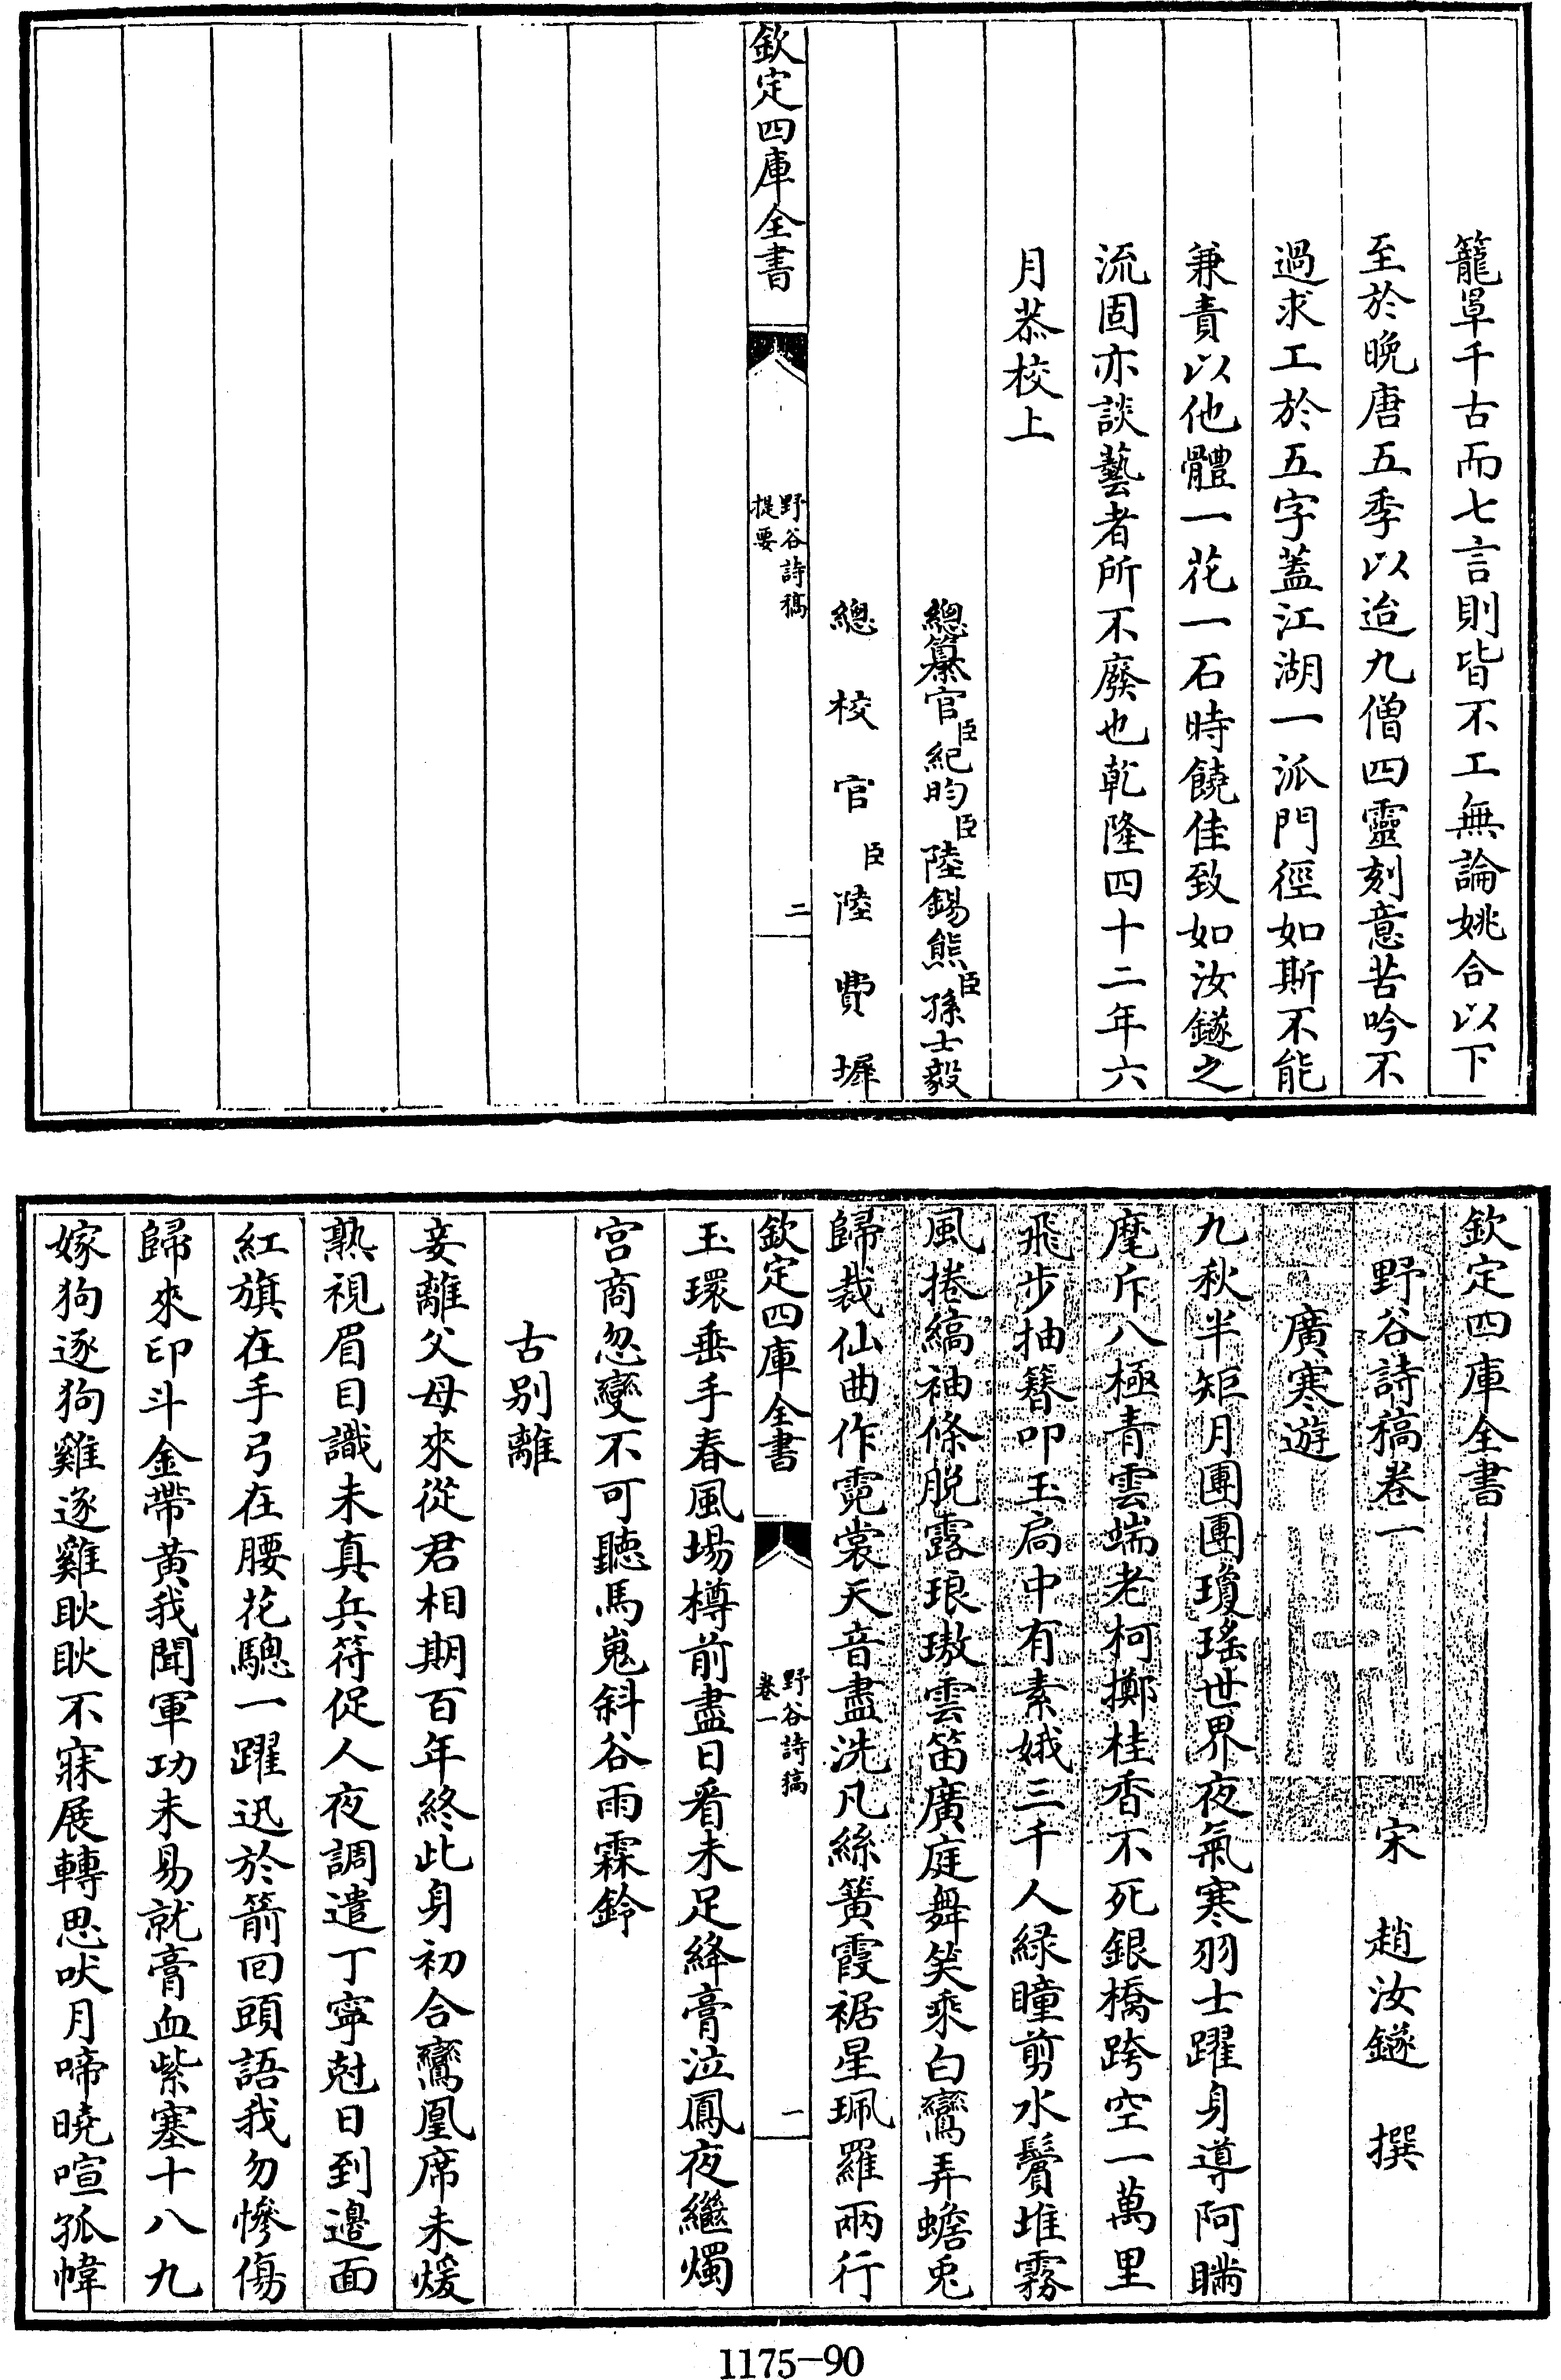 籠罩千古而七言則皆不工無論姚合以下
至於晚唐五季以迨九僧四靈刻意苦吟不
過求工於五字蓋江湖一派門徑如斯不能
兼責以他體一花一石時饒佳致如汝鐩之
流固亦談藝者所不廢也乾隆四十二年六
月恭校上
總纂官臣紀昀臣陸錫熊臣孫士毅
總校官臣陸費墀
欽定四庫全書
野谷詩稿
提要
二
欽定四庫全書
野谷詩稿卷一
宋 趙汝鐩 撰
廣寒遊
九秋半矩月團團瓊瑤世界夜氣寒羽士躍身導阿瞞
麾斥八極青雲端老柯擲桂香不死銀橋跨空一萬里
飛步抽簪叩玉扃中有素娥三千人綠瞳剪水鬢堆霧
風捲縞袖條脫露琅璈雲笛廣庭舞笑乘白鸞弄蟾兎
歸裁仙曲作霓裳天音盡洗凡絲簧霞裾星珮羅兩行
欽定四庫全書
野谷詩稿
卷一
一
玉環垂手春風場樽前盡日看未足絳膏泣鳳夜繼燭
宮商忽變不可聽馬嵬斜谷雨霖鈴
古别離
妾離父母來從君相期百年終此身初合鸞凰席未煖
熟視眉目識未真兵符促人夜調遣丁寧尅日到邊面
紅旗在手弓在腰花驄一躍迅於箭回頭語我勿慘傷
歸來印斗金帶黃我聞軍功未易就膏血紫塞十八九
嫁狗逐狗雞逐雞耿耿不寐展轉思吠月啼曉喧孤幃
1175-90